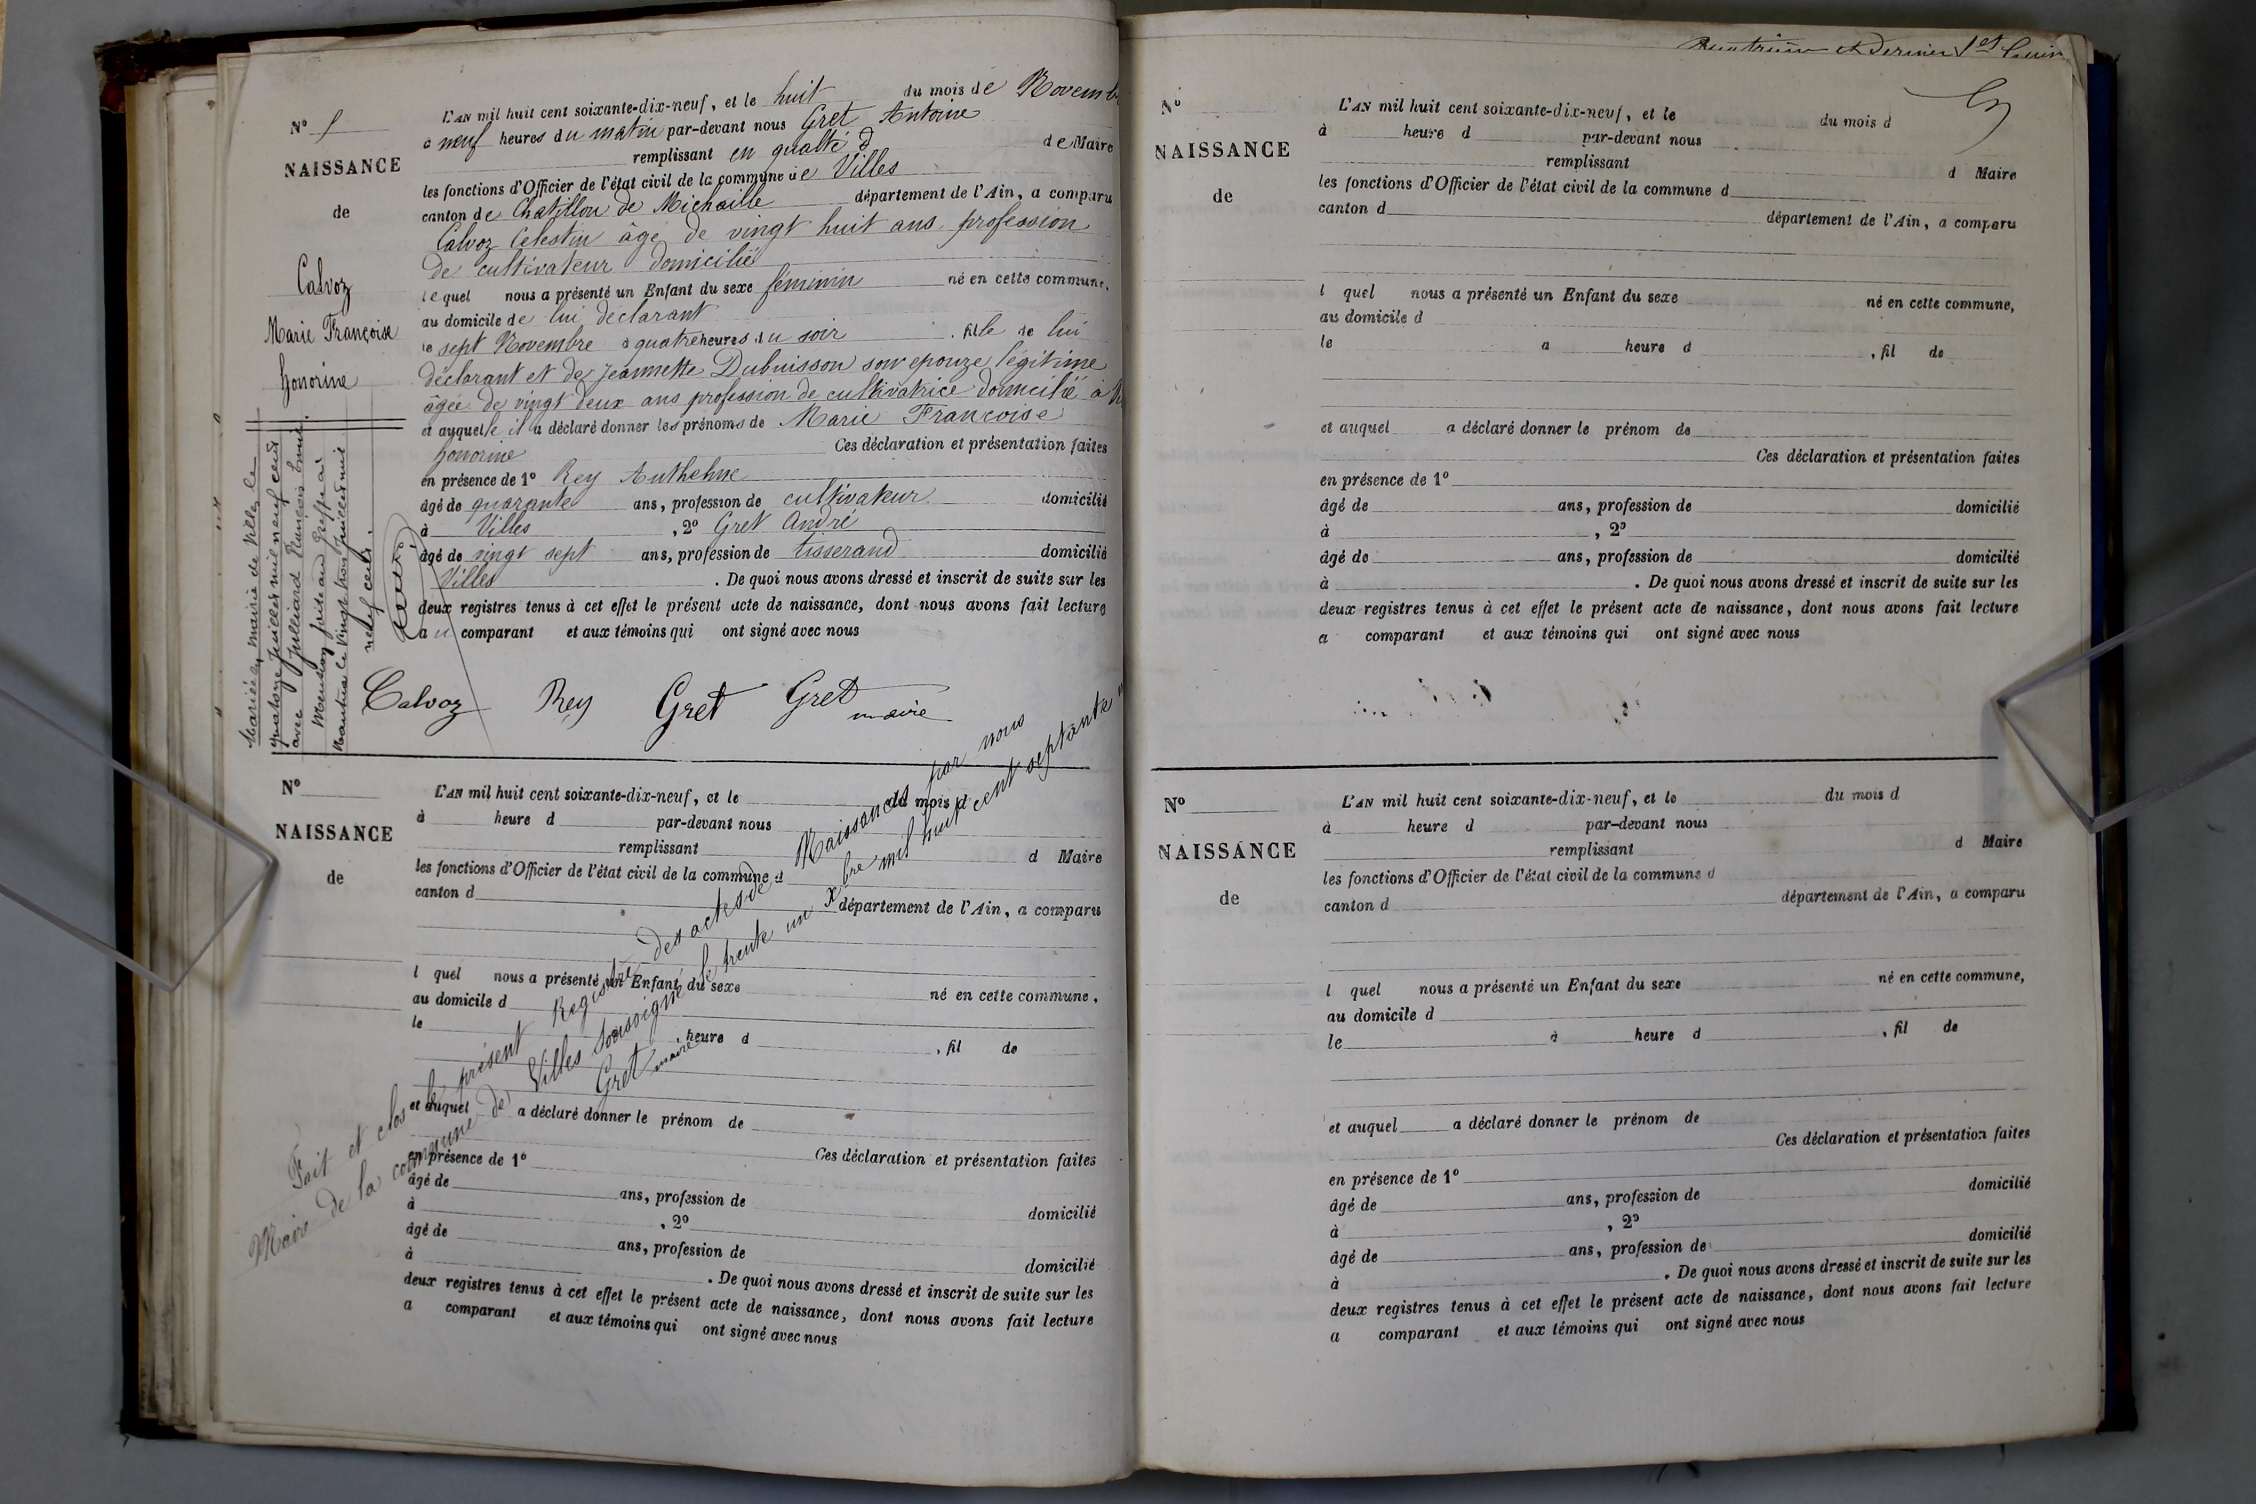 L'AN mil huit cent soixante-dix-neuf, et le huit du mois de Novemb
N°
à neuf heures du matin par-devant nous Gret Antoine
remplissant en qualité d de Maire
NAISSANCE
les fonctions d'Officier de l'état civil de la commune de Villes
de
canton de Chatillon de Michaille département de l'Ain, a comparu
Calvoz Celestin âge de vingt huit ans profession
de cultivateur domicilié
Calvoz
Marie Françoise
honorine
lequel nous a présenté un Enfant du sexe féminin né en cette commune,
au domicile de lui déclarant
le sept Novembre à quatre heures du soir, fille de lui
déclarant et de Jeannette Dubuisson son epouze légitime
âgée de vingt deux ans profession de cultivatrice domicilié à
et auquelle il a déclaré donner les prénoms de Marie Francoise
honorine Ces déclaration et présentation faites
en présence de 1° Rey Anthelme
âgé de quarante ans, profession de cultivateur domicilié
à Villes, 2° Gret André
âgé de vingt sept ans, profession de tisserand domicilié
Villes. De quoi nous avons dressé et inscrit de suite sur les
deux registres tenus à cet effet le présent acte de naissance, dont nous avons fait lecture
au comparant et aux témoins qui ont signé avec nous
Mariée en mairie de Villes le
quatorze juillet mil neuf cent
avec Julliard François
Mention faite au Greffe de
Nantua le vingt trois juillet mil
neuf cent.
Calvoz Rey Gret Gret
maire
N°
NAISSANCE
de
L'AN mil huit cent soixante-dix-neuf, et le du mois d
à heure d par-devant nous
remplissant d Maire
les fonctions d'Officier de l'état civil de la commune d
canton d département de l'Ain, a comparu
l quel nous a présenté un Enfant du sexe né en cette commune,
au domicile d
le heure d, fil de
et auquel a déclaré donner le prénom de
Ces déclaration et présentation faites
en présence de 1°
âgé de ans, profession de domicilié
à, 2°
âgé de ans, profession de domicilié
à. De quoi nous avons dressé et inscrit de suite sur les
deux registres tenus à cet effet le présent acte de naissance, dont nous avons fait lecture
a comparant et aux témoins qui ont signé avec nous
Fait et clos le présent Registre des actes de Naissances par nous
Maire de la commune de Villes Soussigné le trente un Xbre mil huit cent septante
Gret maire
et dernier
N°
NAISSANCE
de
L'AN mil huit cent soixante-dix-neuf, et le du mois d
à heure d par-devant nous
remplissant d Maire
les fonctions d'Officier de l'état civil de la commune d
canton d département de l'Ain, a comparu
l quel nous a présenté un Enfant du sexe né en cette commune,
au domicile d
le a heure d, fil de
et auquel a déclaré donner le prénom de
Ces déclaration et présentation faites
en présence de 1°
âgé de ans, profession de domicilié
à, 2°
âgé de ans, profession de domicilié
à. De quoi nous avons dressé et inscrit de suite sur les
deux registres tenus à cet effet le présent acte de naissance, dont nous avons fait lecture
a comparant et aux témoins qui ont signé avec nous
N°
NAISSANCE
de
L'AN mil huit cent soixante-dix-neuf, et le du mois d
à heure d par-devant nous
remplissant d Maire
les fonctions d'Officier de l'état civil de la commune d
canton d département de l'Ain, a comparu
l quel nous a présenté un Enfant du sexe né en cette commune,
au domicile d
le à heure d, fil de
et auquel a déclaré donner le prénom de
Ces déclaration et présentation faites
en présence de 1°
âgé de ans, profession de domicilié
à, 2°
âgé de ans, profession de domicilié
à. De quoi nous avons dressé et inscrit de suite sur les
deux registres tenus à cet effet le présent acte de naissance, dont nous avons fait lecture
a comparant et aux témoins qui ont signé avec nous